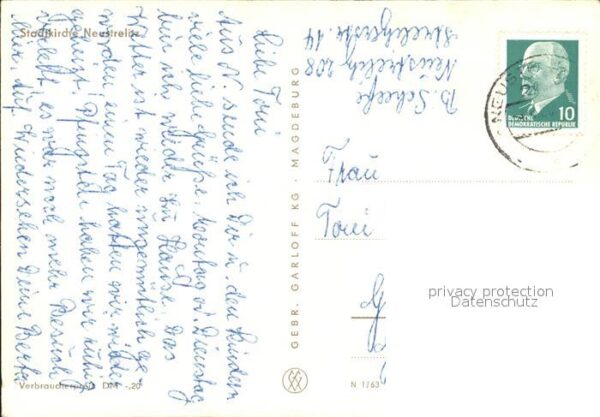 Stadtkirche Neustrelitz
Liebe Toni
Aus N. sende ich Dir u. den Kindern
viele liebe Grüße. Montag od Dienstag
bin ich wieder zu Hause. Das
Wetter ist wieder ungemütlich ge
worden, einen Tag hatten wir wieder
geheizt. Pfingsten haben wir ruhig
es war noch mehr Besuch
hier. Auf Wiedersehen Deine Berta
Verbraucherpreis DM -,20
GEBR. GARLOFF KG · MAGDEBURG
B Scheefe
Neustrelitz 208
Strelitzerstr. 14
NEUS
10
DEUTSCHE
DEMOKRATISCHE REPUBLIK
Frau
Toni
G
privacy protection
Datenschutz
N 1763